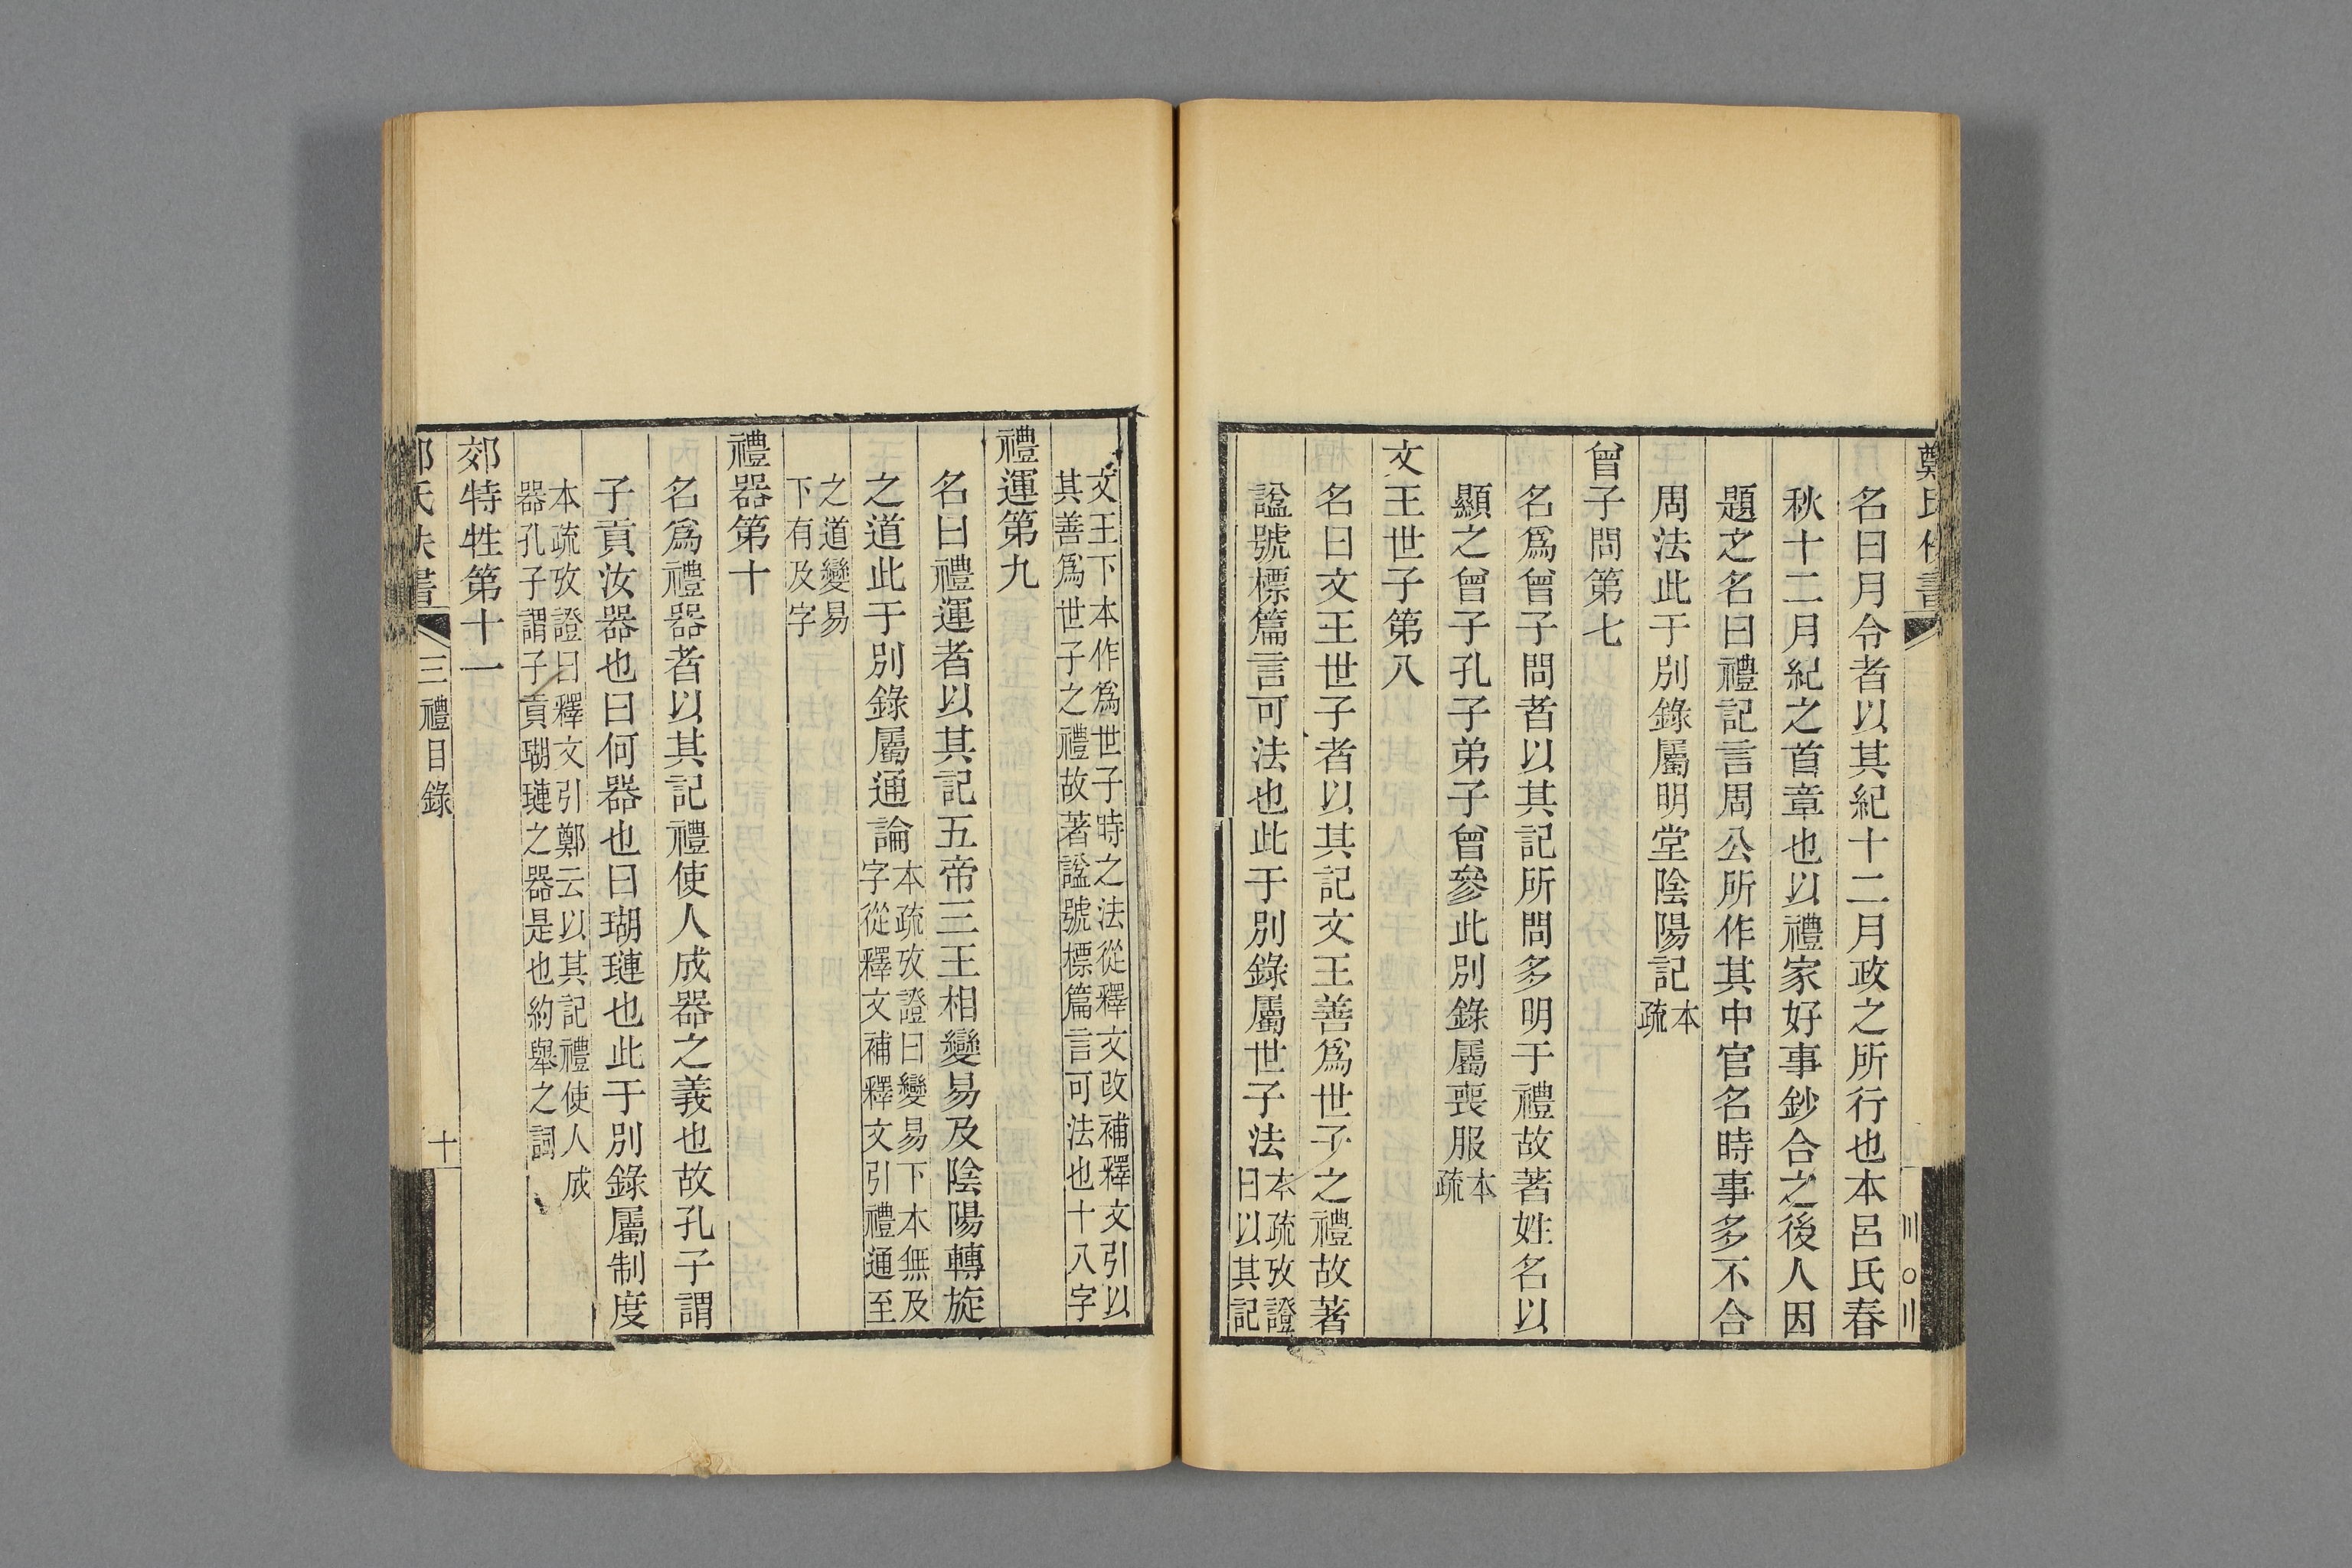 名曰月令者以其紀十二月政之所行也本呂氏春
秋十二月紀之首章也以禮家好事鈔合之後人因
題之名曰禮記言周公所作其中官名時事多不合
周法此于別錄屬明堂陰陽記本疏
曾子問第七
名爲曾子問者以其記所問多明于禮故著姓名以
顯之曾子孔子弟子曾參此別錄屬喪服本疏
文王世子第八
名曰文王世子者以其記文王善爲世子之禮故著
諡號標篇言可法也此于別錄屬世子法本疏攷證
曰以其記
文王下本作爲世子時之法從釋文改補釋文引以
其善爲世子之禮故著諡號標篇言可法也十八字
禮運第九
名曰禮運者以其記五帝三王相變易及陰陽轉旋
之道此于別錄屬通論本疏攷證曰變易下本無及
字從釋文補釋文引禮通至
之道變易
下有及字
禮器第十
名爲禮器者以其記禮使人成器之義也故孔子謂
子貢汝器也曰何器也曰瑚璉也此于別錄屬制度
本疏攷證曰釋文引鄭云以其記禮使人成
器孔子謂子貢瑚璉之器是也約舉之詞
郊特牲第十一
三禮目錄
十